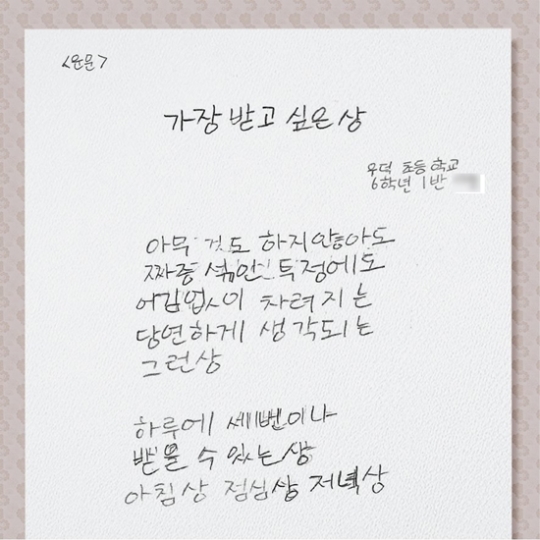 <운문>
가장 받고 싶은 상
우덕 초등학교
6학년 1반
아무 것도 하지않아도
짜증 섞인 투정에도
어김없이 차려지는
당연하게 생각되는
그런상
하루에 세번이나
받을 수 있는 상
아침상 점심상 저녁상